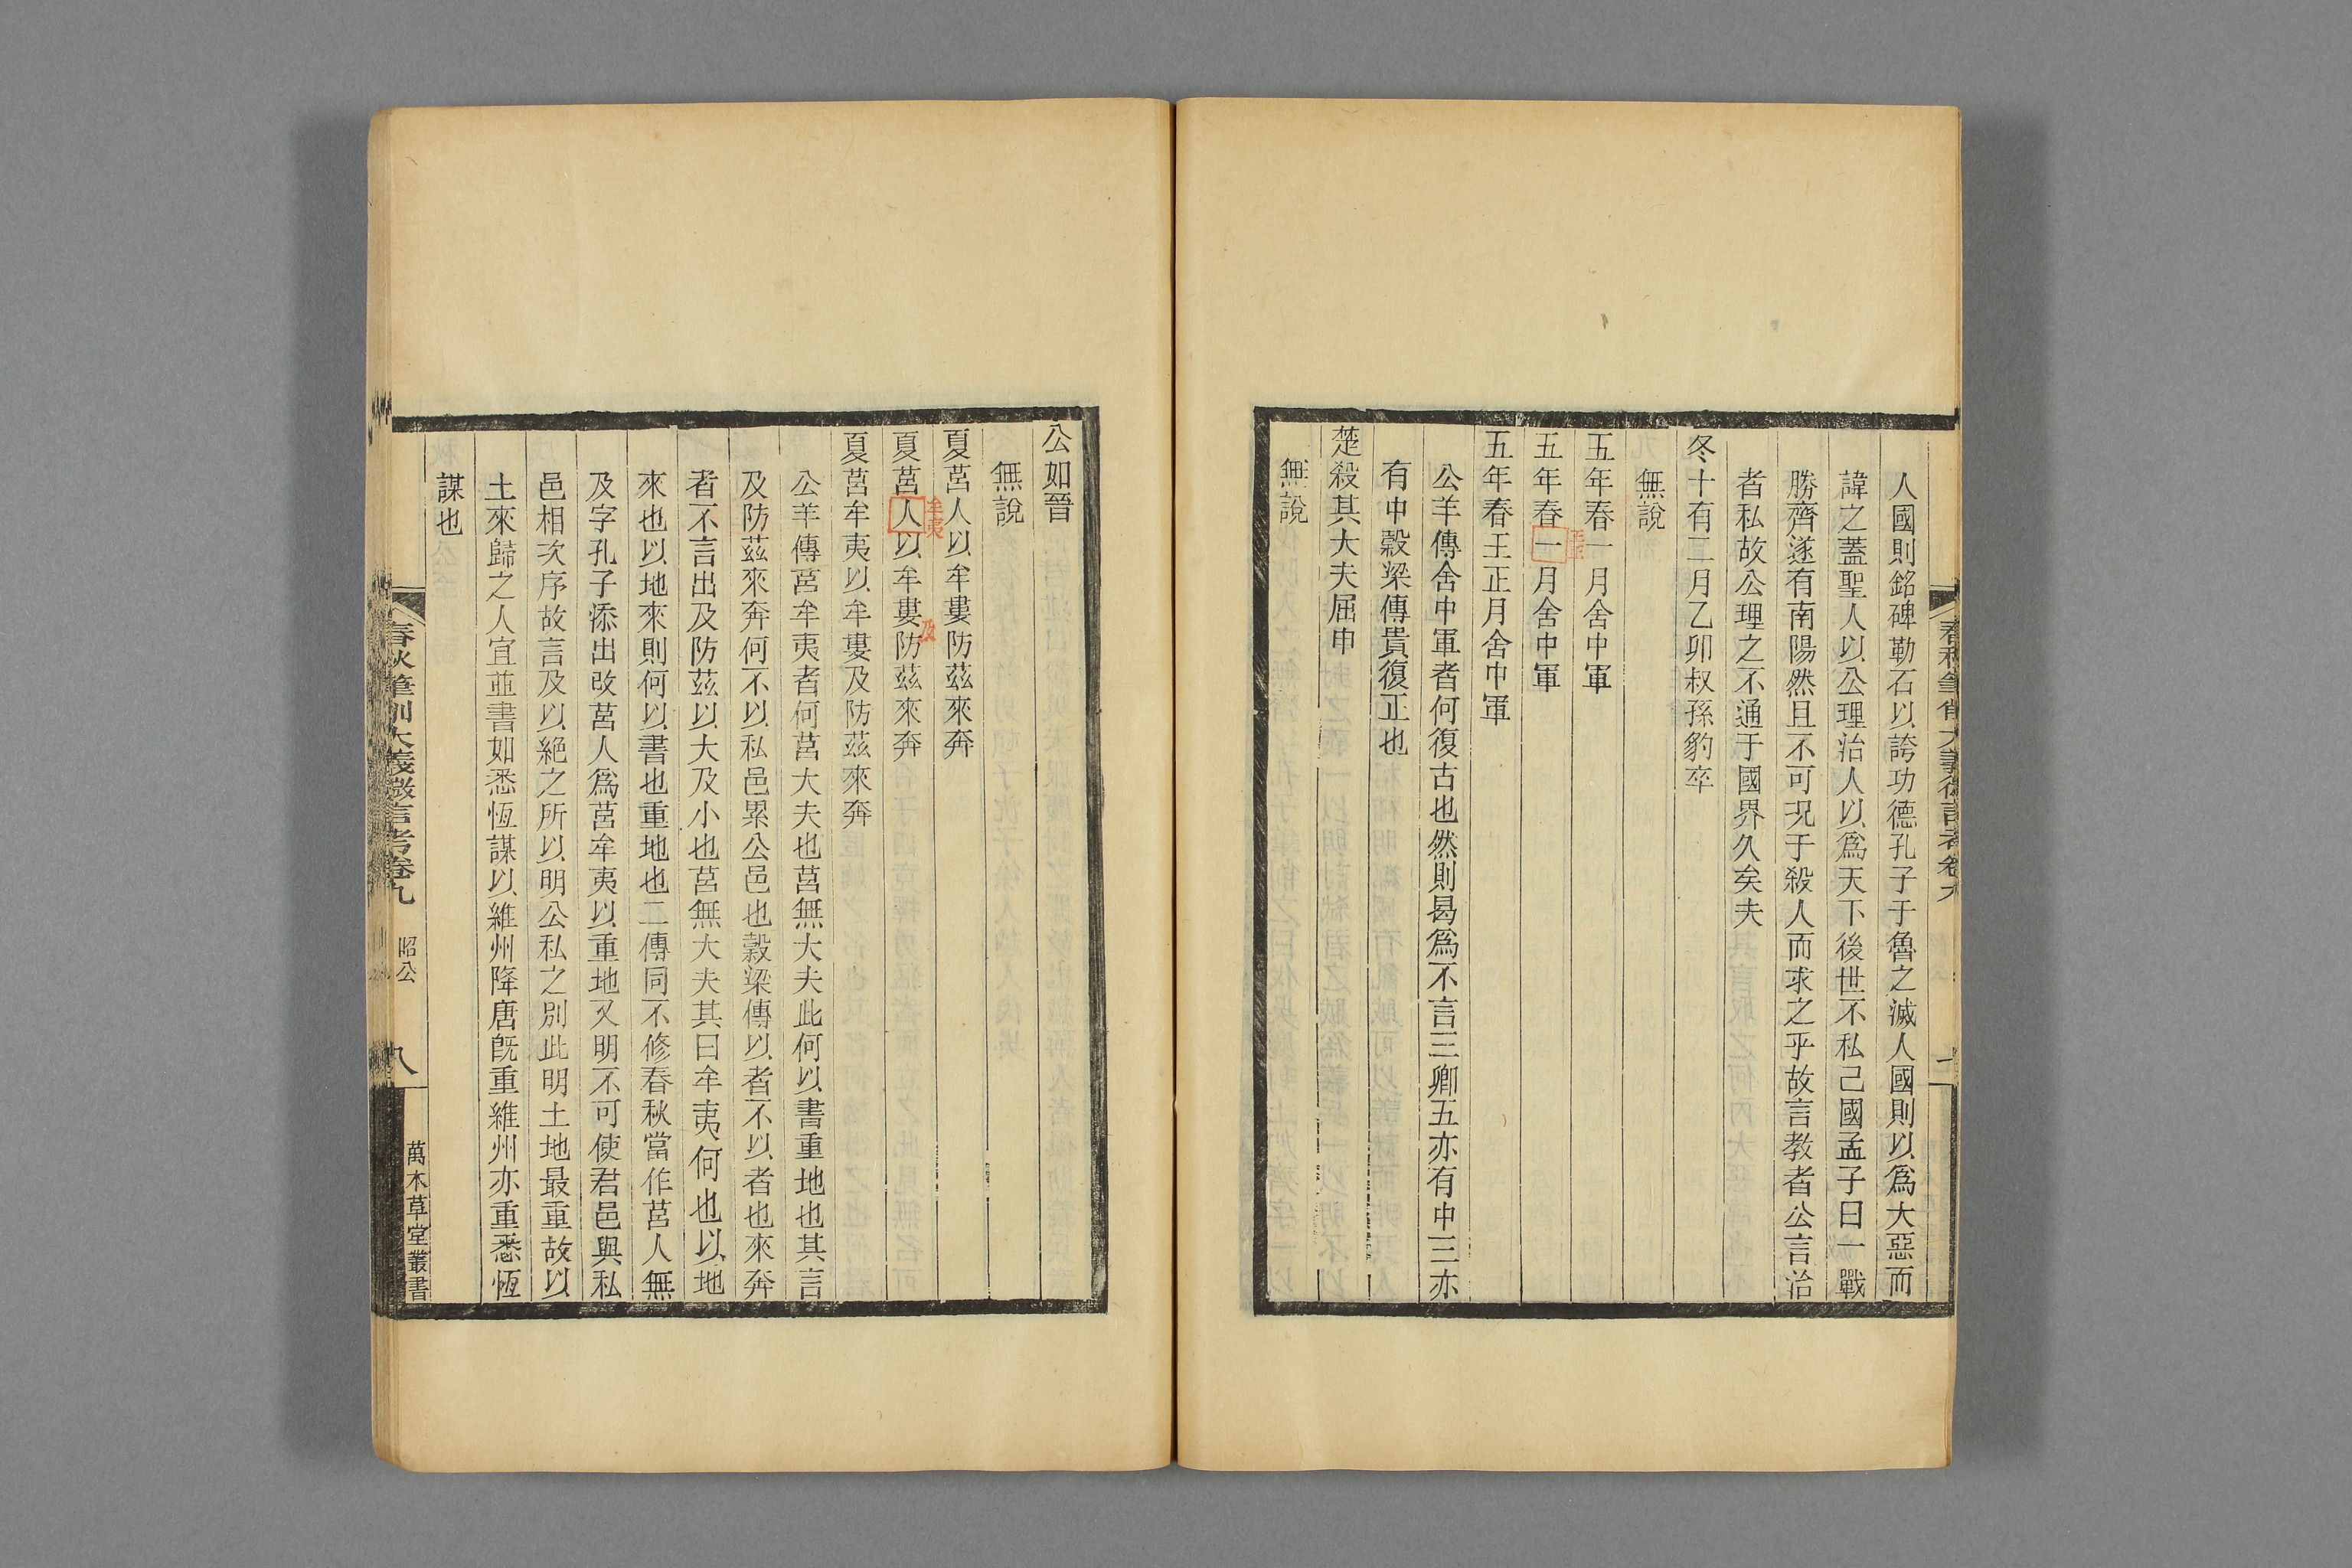 人國則銘碑勒石以誇功德孔子于魯之滅人國則以爲大惡而
諱之蓋聖人以公理治人以爲天下後世不私己國孟子曰一戰
勝齊遂有南陽然且不可況于殺人而求之乎故言教者公言治
者私故公理之不通于國界久矣夫
冬十有二月乙卯叔孫豹卒
無說
五年春一月舍中軍
五年春一月舍中軍
王正
五年春王正月舍中軍
公羊傳舍中軍者何復古也然則曷爲不言三卿五亦有中三亦
有中穀梁傳貴復正也
楚殺其大夫屈申
無說
公如晉
無說
夏莒人以牟婁防茲來奔
夏莒人以牟婁防茲來奔
牟夷
及
夏莒牟夷以牟婁及防茲來奔
公羊傳莒牟夷者何莒大夫也莒無大夫此何以書重地也其言
及防茲來奔何不以私邑累公邑也穀梁傳以者不以者也來奔
者不言出及防茲以大及小也莒無大夫其曰牟夷何也以地
來也以地來則何以書也重地也二傳同不修春秋當作莒人無
及字孔子添出改莒人爲莒牟夷以重地又明不可使君邑與私
邑相次序故言及以絕之所以明公私之別此明土地最重故以
土來歸之人宜並書如悉恆謀以維州降唐旣重維州亦重悉恆
謀也
春秋筆削大義微言考卷九
昭公
八
萬木草堂叢書